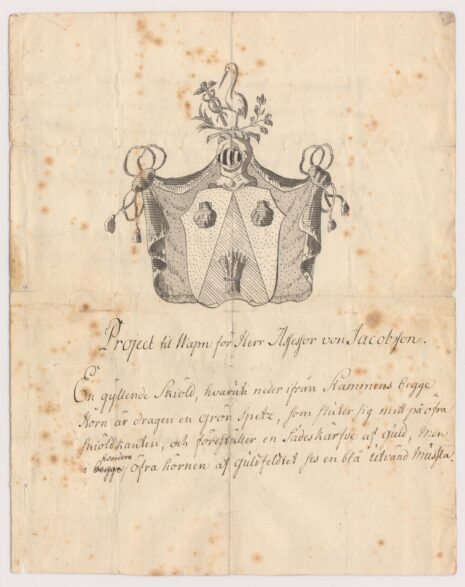 Project til Wapn för Herr Assessor von Jacobsson.
En gyllende Skiöld, hvaruti neder ifrån Stammens begge
Hörn är dragen en Grön Spitz, som sluter sig mitt på öfra
skiöldkanten, och föreställer en Sädeskärfve af guld, men
hvardera
i begge öfra hörnen af Guldfeldtet ses en blå utvänd Mussla.